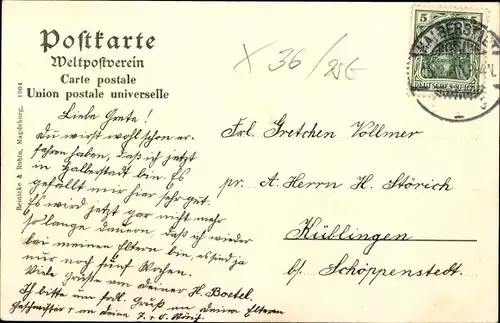 Postkarte
Weltpostverein
Carte postale
Union postale universelle
X 36/25E
5 5
HALBERSTADT
DEUTSCHES REICH
Reinicke & Rubin, Magdeburg. 1904
Liebe Grete!
Du wirst wohl schon er-
fahren haben, daß ich jetzt
in Halberstadt bin. Es
gefällt mir hier sehr gut.
Es wird jetzt gar nicht mehr
so lange dauern, daß ich wieder
bei meinen Eltern bin, es sind ja
nur noch fünf Wochen.
Viele Grüße von deiner H. Bostel.
Ich bitte um frdl. Gruß an deine Eltern
Geschwister u. an deine
Frl. Gretchen Vollmer
pr. A. Herrn H. Störich
Küblingen
b/ Schöppenstedt.